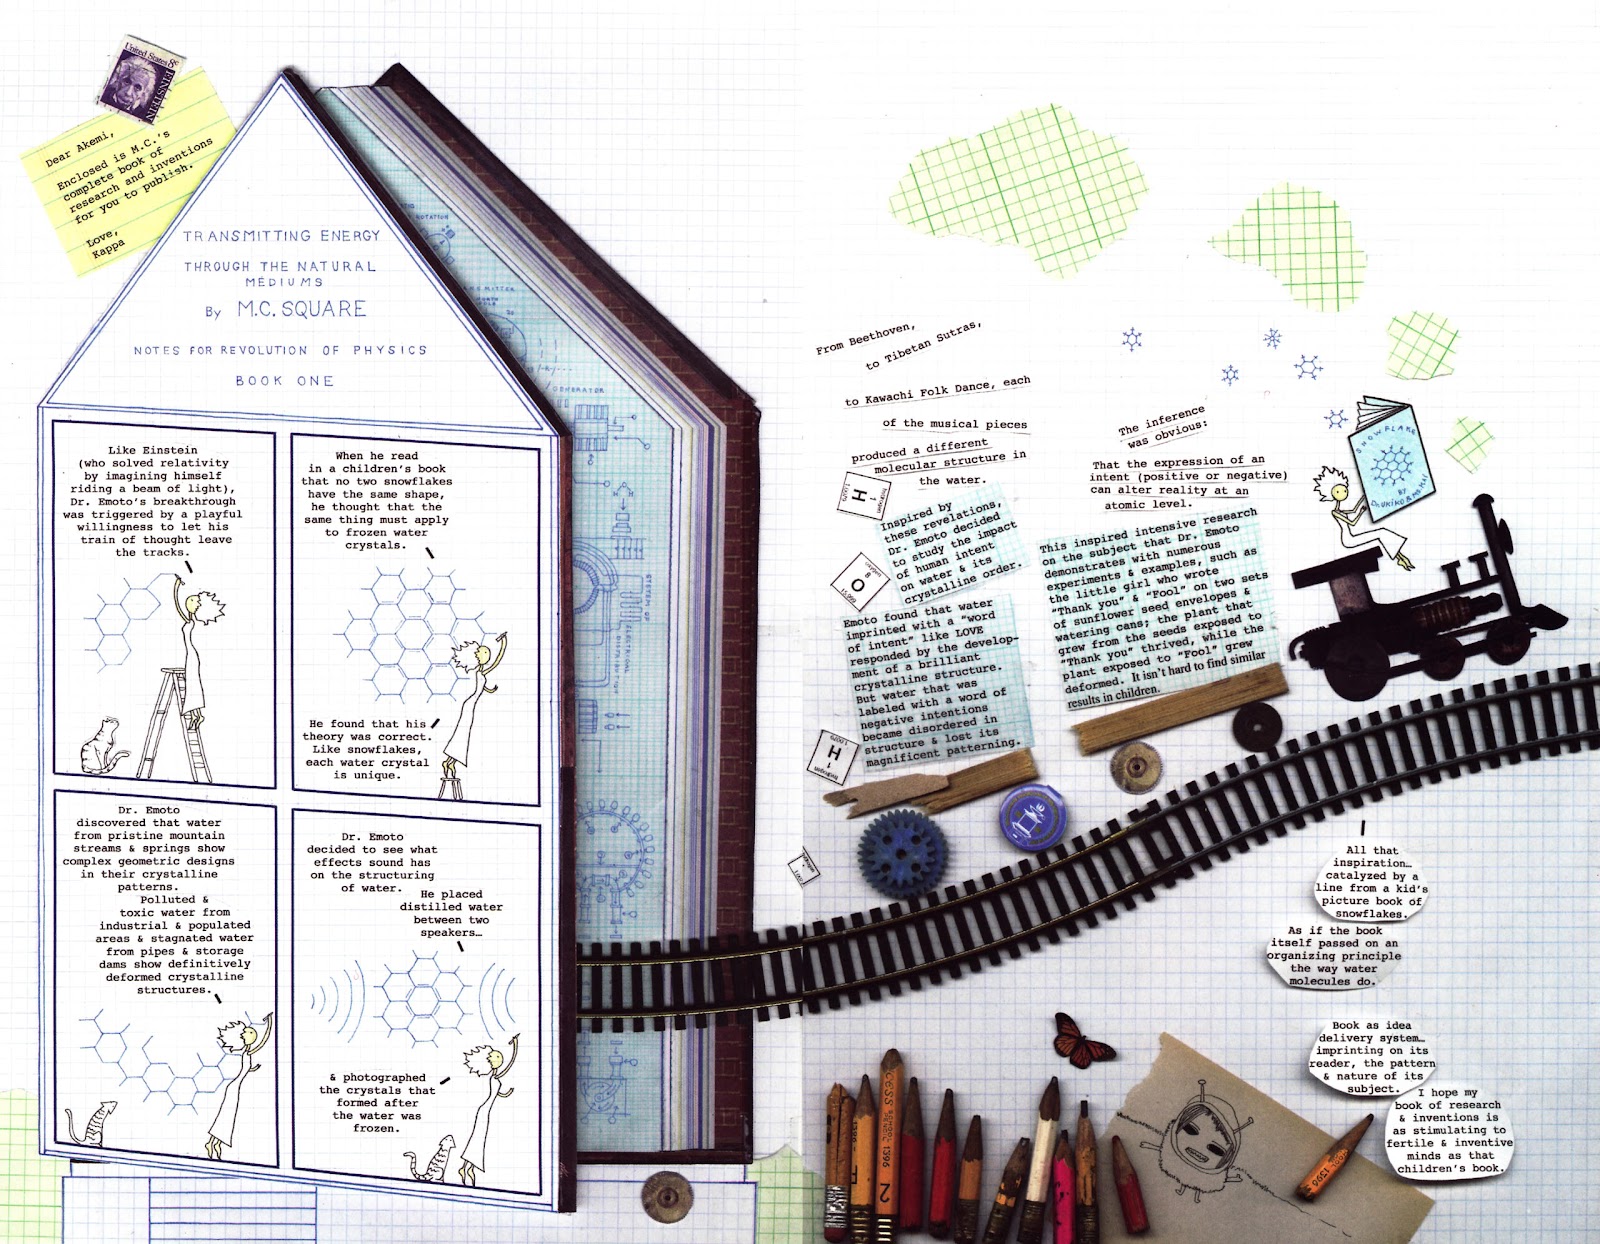 United States 8¢
EINSTEIN
Dear Akemi,
Enclosed is M.C.'s
complete book of
research and inventions
for you to publish.
Love,
Kappa
TRANSMITTING ENERGY
THROUGH THE NATURAL
MEDIUMS
By M.C. SQUARE
NOTES FOR REVOLUTION OF PHYSICS
BOOK ONE
Like Einstein
(who solved relativity
by imagining himself
riding a beam of light),
Dr. Emoto's breakthrough
was triggered by a playful
willingness to let his
train of thought leave
the tracks.
When he read
in a children's book
that no two snowflakes
have the same shape,
he thought that the
same thing must apply
to frozen water
crystals.
He found that his
theory was correct.
Like snowflakes,
each water crystal
is unique.
Dr. Emoto
discovered that water
from pristine mountain
streams & springs show
complex geometric designs
in their crystalline
patterns.
Polluted &
toxic water from
industrial & populated
areas & stagnated water
from pipes & storage
dams show definitively
deformed crystalline
structures.
Dr. Emoto
decided to see what
effects sound has
on the structuring
of water.
He placed
distilled water
between two
speakers…
& photographed
the crystals that
formed after
the water was
frozen.
NOTATION
GENERATOR
From Beethoven,
to Tibetan Sutras,
to Kawachi Folk Dance, each
of the musical pieces
produced a different
molecular structure in
the water.
1
H
hydrogen
1.0079
Inspired by
these revelations,
Dr. Emoto decided
to study the impact
of human intent
on water & its
crystalline order.
8
O
Emoto found that water
imprinted with a "word
of intent" like LOVE
responded by the develop-
ment of a brilliant
crystalline structure.
But water that was
labeled with a word of
negative intentions
became disordered in
structure & lost its
magnificent patterning.
1
H
hydrogen
1.0079
The inference
was obvious:
That the expression of an
intent (positive or negative)
can alter reality at an
atomic level.
This inspired intensive research
on the subject that Dr. Emoto
demonstrates with numerous
experiments & examples, such as
the little girl who wrote
"Thank you" & "Fool" on two sets
of sunflower seed envelopes &
watering cans; the plant that
grew from the seeds exposed to
"Thank you" thrived, while the
plant exposed to "Fool" grew
deformed. It isn't hard to find similar
results in children.
SNOWFLAKE
BY
All that
inspiration…
catalyzed by a
line from a kid's
picture book of
snowflakes.
As if the book
itself passed on an
organizing principle
the way water
molecules do.
Book as idea
delivery system…
imprinting on its
reader, the pattern
& nature of its
subject.
I hope my
book of research
& inventions is
as stimulating to
fertile & inventive
minds as that
children's book.
1396
SCHOOL
PENCIL 1396
2
1396